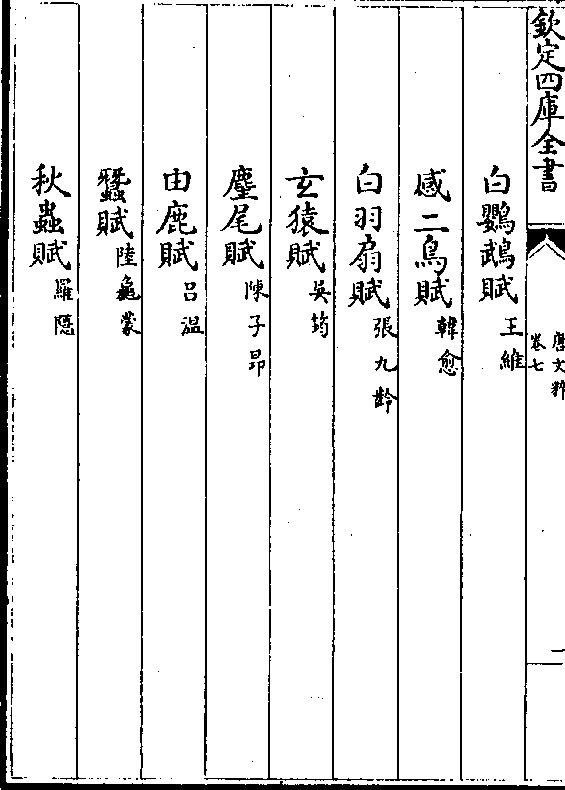 欽定四庫全書
唐文粹
卷七
一
白鸚鵡賦王維
感二鳥賦韓愈
白羽扇賦張九齡
玄猿賦吳筠
麈尾賦陳子昻
由鹿賦呂溫
蠶賦陸龜蒙
秋蟲賦羅隱